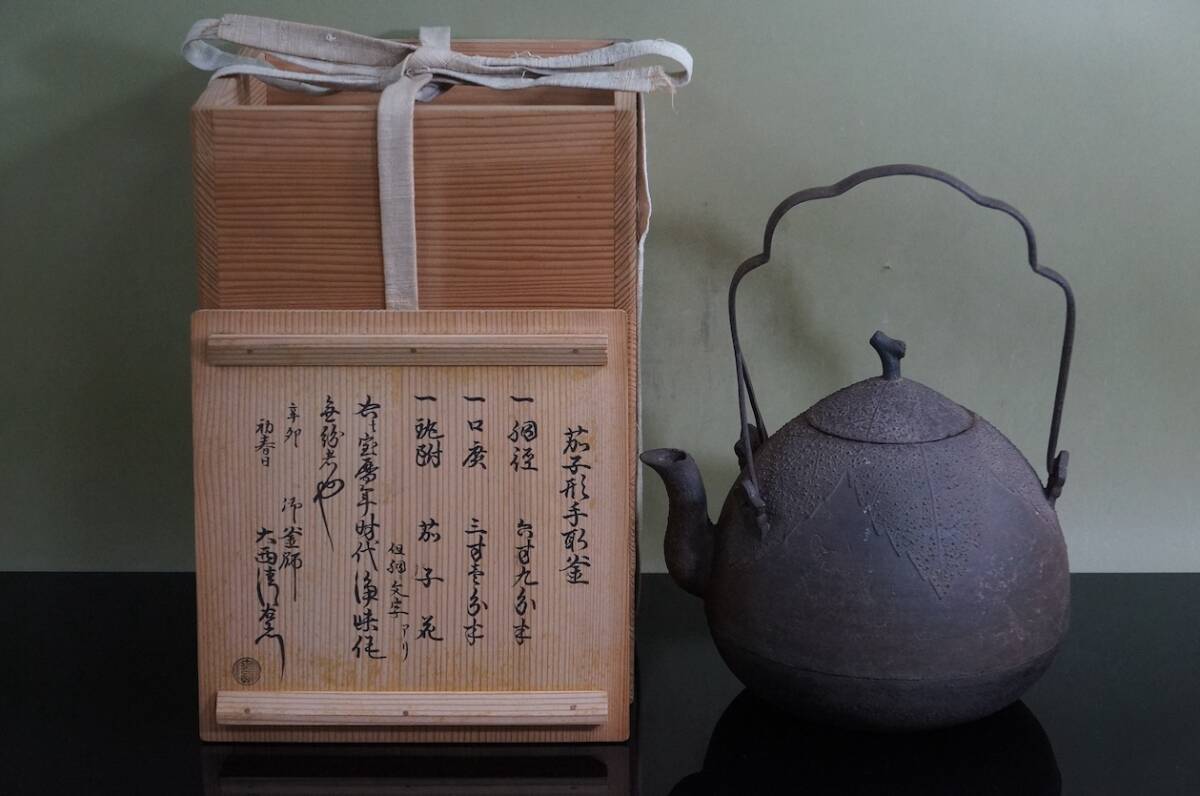 茄子形手取釜
一 胴径 六寸九分半
一 口広 三寸壱分半
一 鐶附 茄子花
但胴文字アリ
右宝暦年時代浄味作
無紛者也
辛卯
初春日
御釜師
大西清右衛門